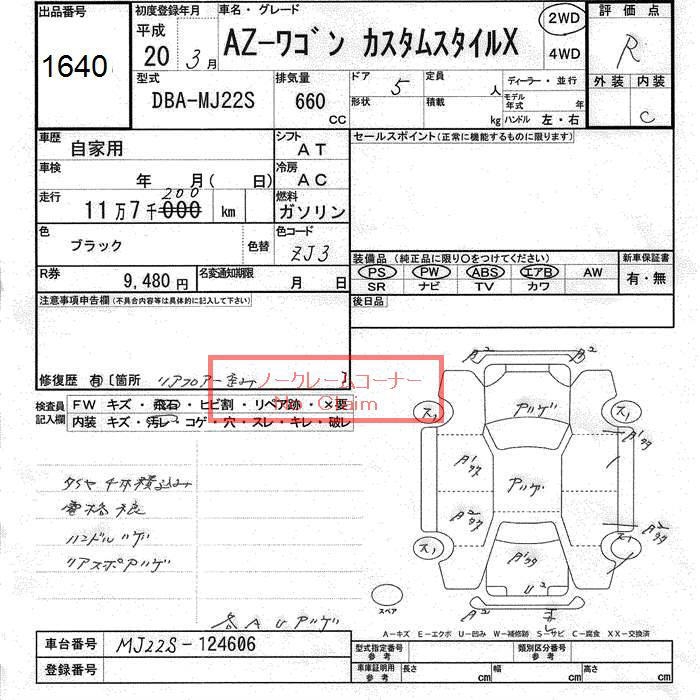 出品番号
1640
初度登録年月
平成
20 3月
車名・グレード
AZーワゴン カスタムスタイルX
2WD
4WD
評価点
R
外装 内装
C
型式
DBA-MJ22S
排気量
660
CC
ドア
5
定員
人
形状
積載
kg
ディーラー・並行
モデル年式 年
ハンドル 左・右
車歴
自家用
シフト
AT
セールスポイント(正常に機能するものに限ります)
車検
年 月( 日)
冷房
AC
走行
200
11万7千000 km
燃料
ガソリン
色
ブラック
色替
色コード
ZJ3
装備品(純正品に限り○をつけてください)
新車保証書
PS PW ABS エアB AW
SR ナビ TV カワ
有・無
R券
9,480円
名変通知期限
月 日
後日品
注意事項申告欄(不具合内容等は具体的に記入して下さい)
修復歴 有〔箇所 リアフロアー歪み 〕
ノークレームコーナー
No Claim
検査員
記入欄
FW キズ・飛石・ヒビ割・リペア跡・×要
内装 キズ・汚レ・コゲ・穴・スレ・キレ・破レ
タイヤ 4本積込み
電格不良
ハンドルハゲ
リアスポアハゲ
各AUアハゲ
A2 A2
アハゲ
ス1 ス1
A1ワク
A1ワク
アハゲ
A2ワク
A2ワク
A1ワク
ス1 ス1
U2
A2
スペア
A－キズ E－エクボ U－凹み W－補修跡 S－サビ C－腐食 XX－交換済
車台番号
MJ22S-124606
登録番号
型式指定番号
参考
類別区分番号
参考
車庫証明用
参考
長さ cm
幅 cm
高さ cm